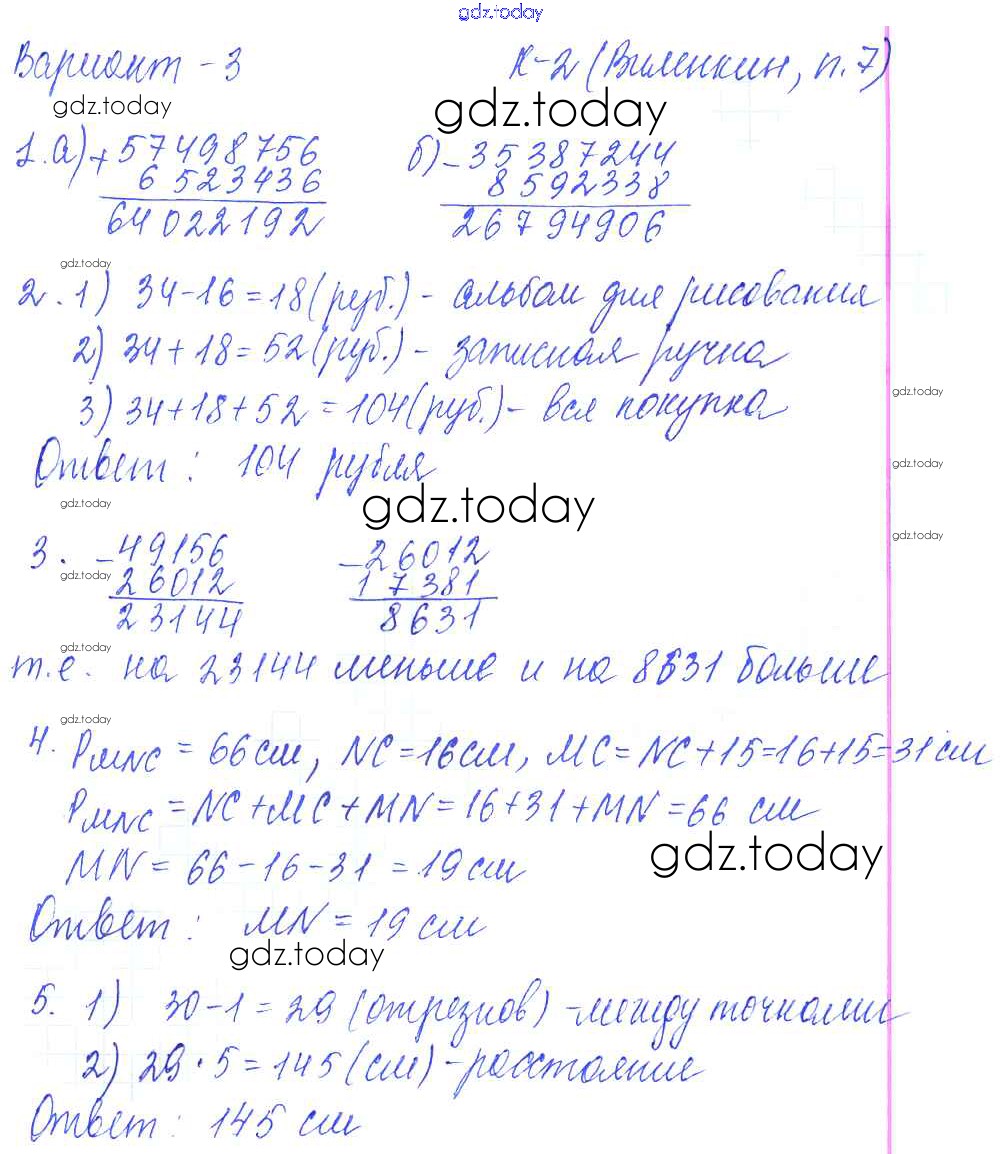 gdz.today
Вариант - 3 К-2 (Виленкин, п.7)
gdz.today gdz.today
1. а) + 57498756 б) - 35387244
6523436 8592338
64022192 26794906
gdz.today
2. 1) 34-16=18(руб.) - альбом для рисования
2) 34+18=52(руб.) - записная ручка
gdz.today
3) 34+18+52=104(руб.) - вся покупка
Ответ: 104 рубля
gdz.today
gdz.today gdz.today
gdz.today
3. - 49156 - 26012
gdz.today
26012 17381
23144 8631
gdz.today
т.е. на 23144 меньше и на 8631 больше
gdz.today
4. PMNC = 66см, NC=16см, MC=NC+15=16+15=31см
PMNC = NC+MC+MN=16+31+MN=66 см
gdz.today
MN = 66-16-31 = 19см
Ответ: MN = 19 см
gdz.today
5. 1) 30-1=29 (отрезков) - между точками
2) 29·5=145 (см) - расстояние
Ответ: 145 см